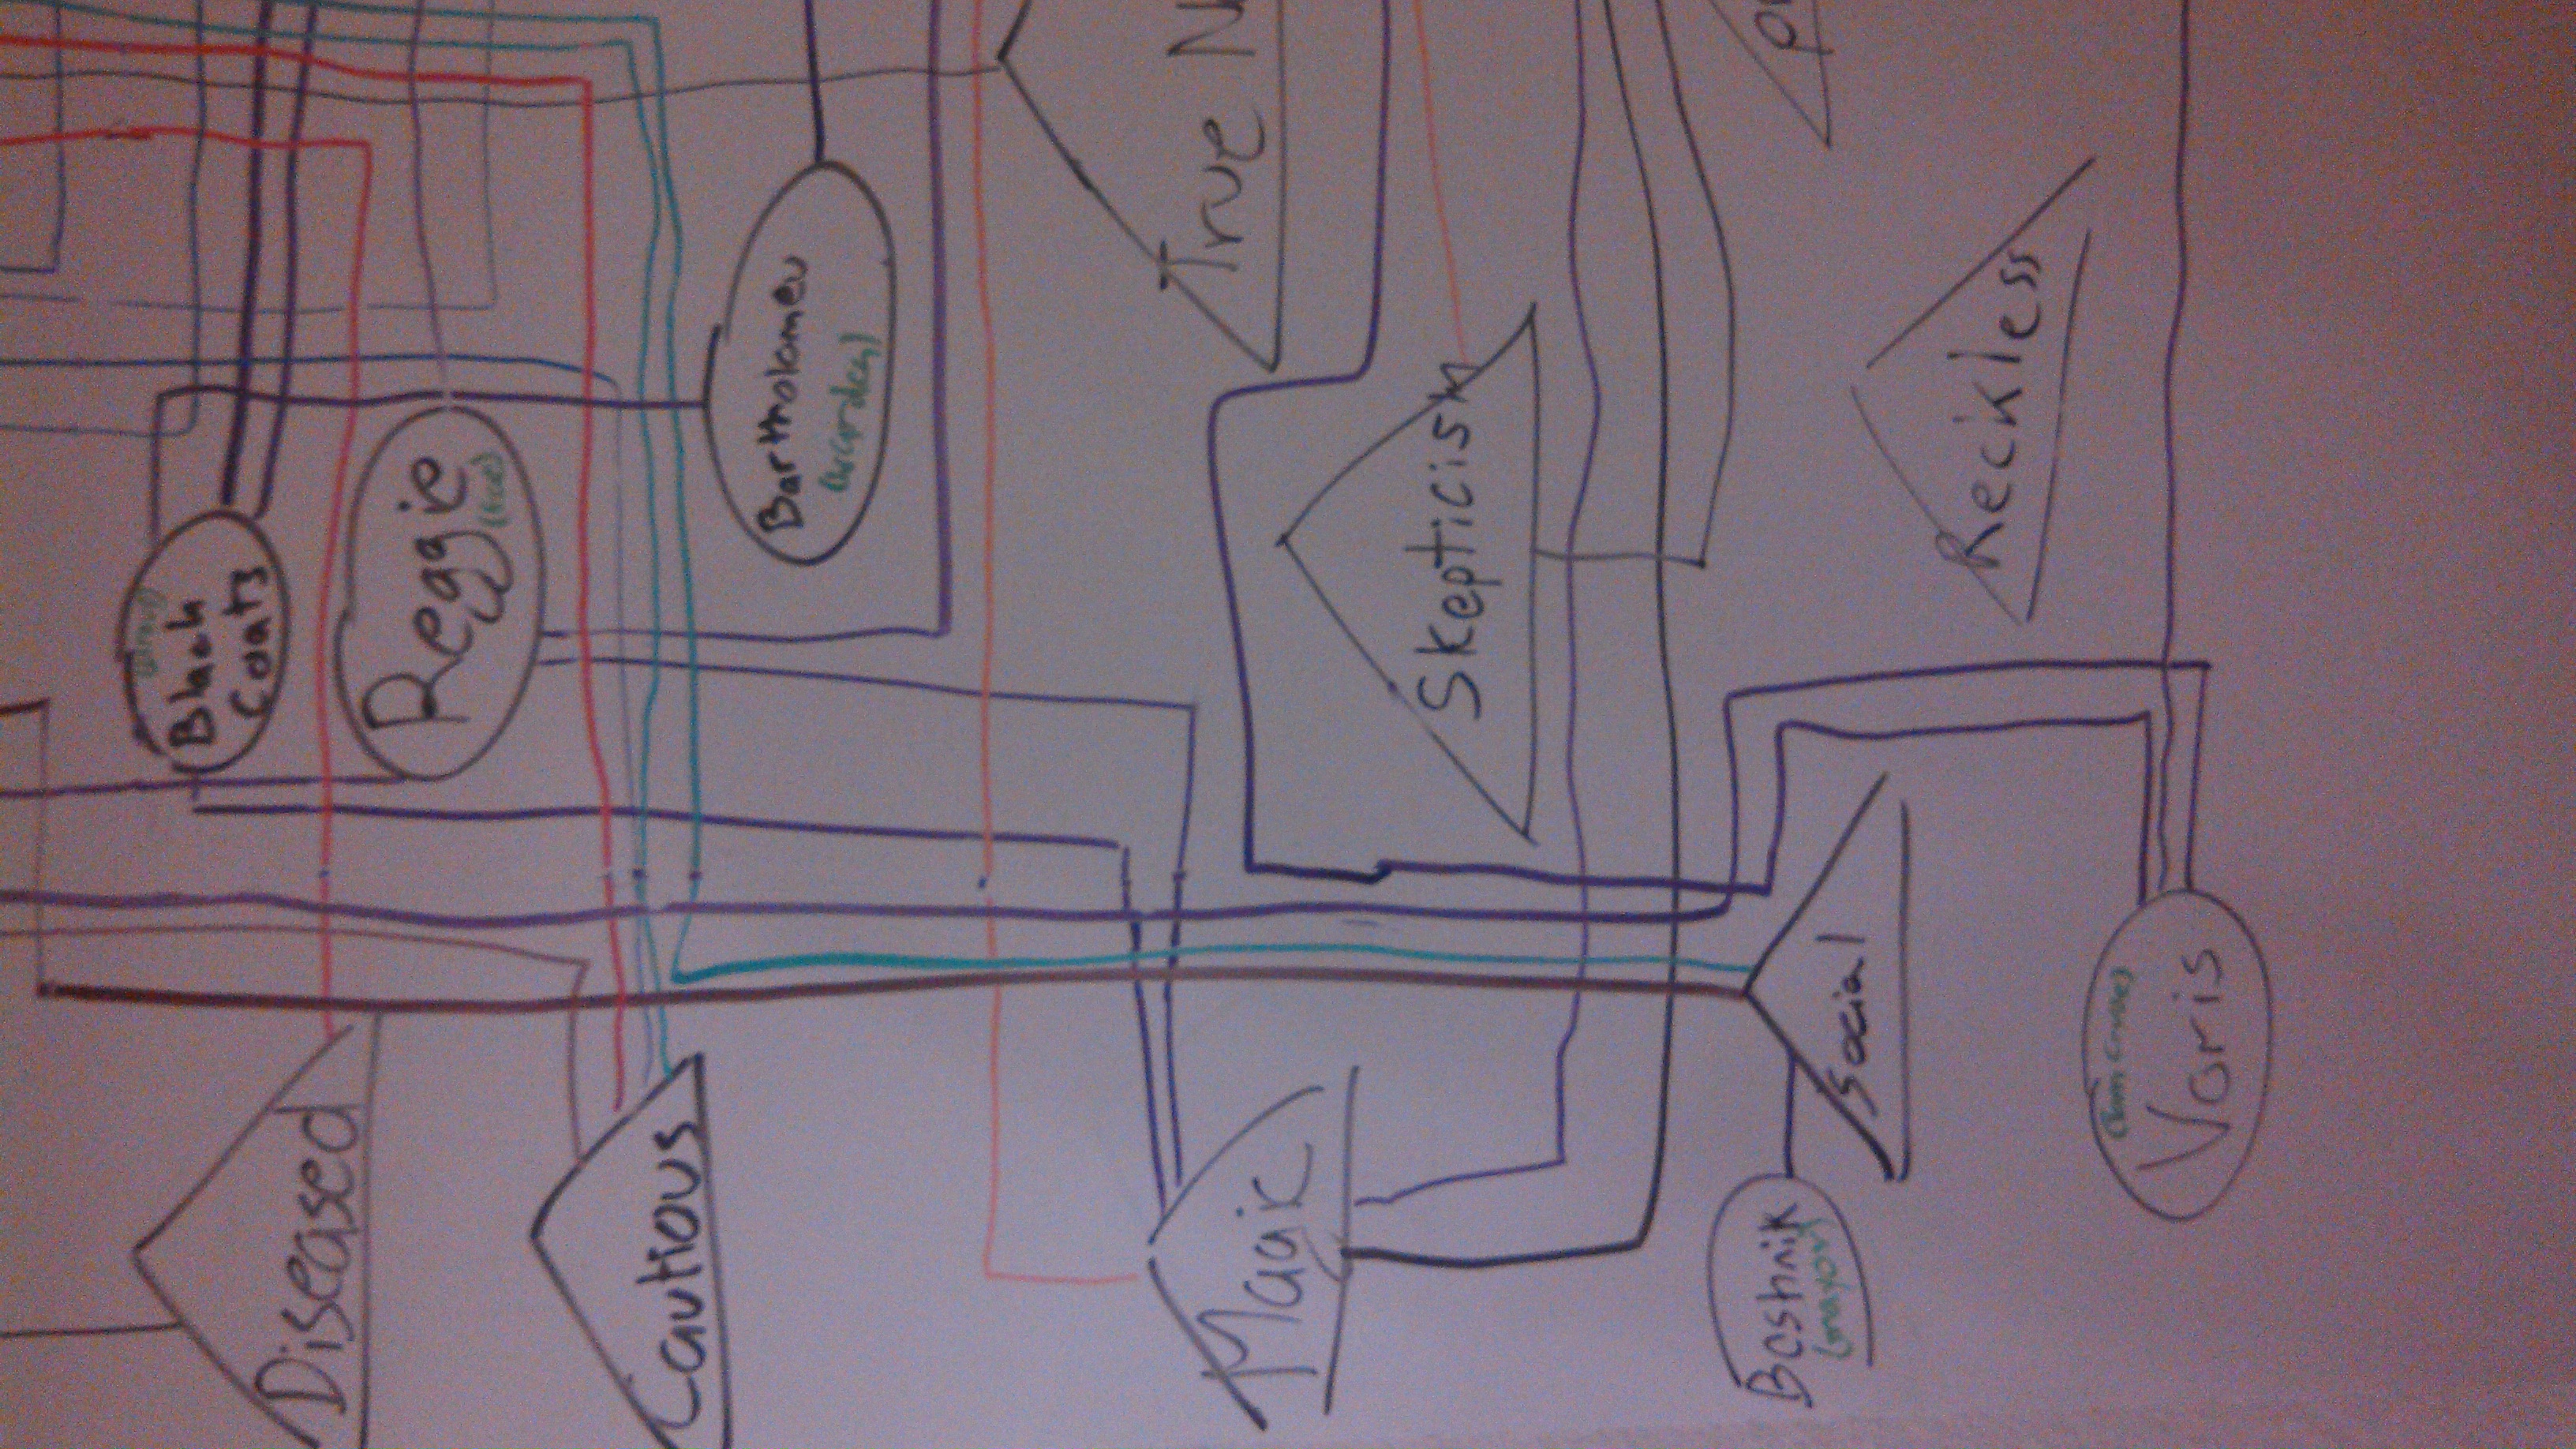 Black
Coats
Diseased
Reggie
Cautious
Bartholomew
(warden)
True N
Magic
Skepticism
Beshnik
(mayor)
Social
Reckless
(Tom Cruise)
Voris